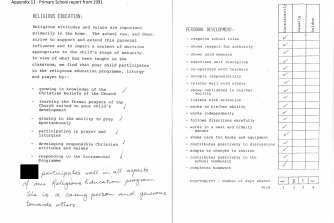 Appendix 13 - Primary School report from 1991
RELIGIOUS EDUCATION:
Religious attitudes and values are important
primarily in the home. The school can, and does,
strive to support and extend this parental
influence and to impart a content of doctrine
appropriate to the child's stage of maturity.
In view of what has been taught in the
classroom, we find that your child participates
in the religious education programme, liturgy
and prayer by:
- growing in knowledge of the
Christian beliefs of the Church
- learning the formal prayers of the
Church suited to your child's
development
- growing in the ability to pray
spontaneously
- participating in prayer and
liturgies
- developing responsible Christian
attitudes and values
- responding to the Sacramental
Programme
participates well in all aspects
of our Religious Education program.
She is a caring person and generous
towards others.
PERSONAL DEVELOPMENT:
Consistently
Usually
Seldom
- respects school rules
- shows respect for authority
- shows good manners
- exercises self discipline
- co-operates with teachers
- accepts responsibility
- relates well with others
- shows confidence in his/her
ability
- listens with attention
- works to his/her ability
- works independently
- follows directions carefully
- works in a neat and orderly
manner
- shows care for books and equipment
- contributes positively to discussions
- adapts to changes in routine
- contributes positively to the
school community
- completes homework
PUNCTUALITY - number of days absent:
Term 1 2 3 4